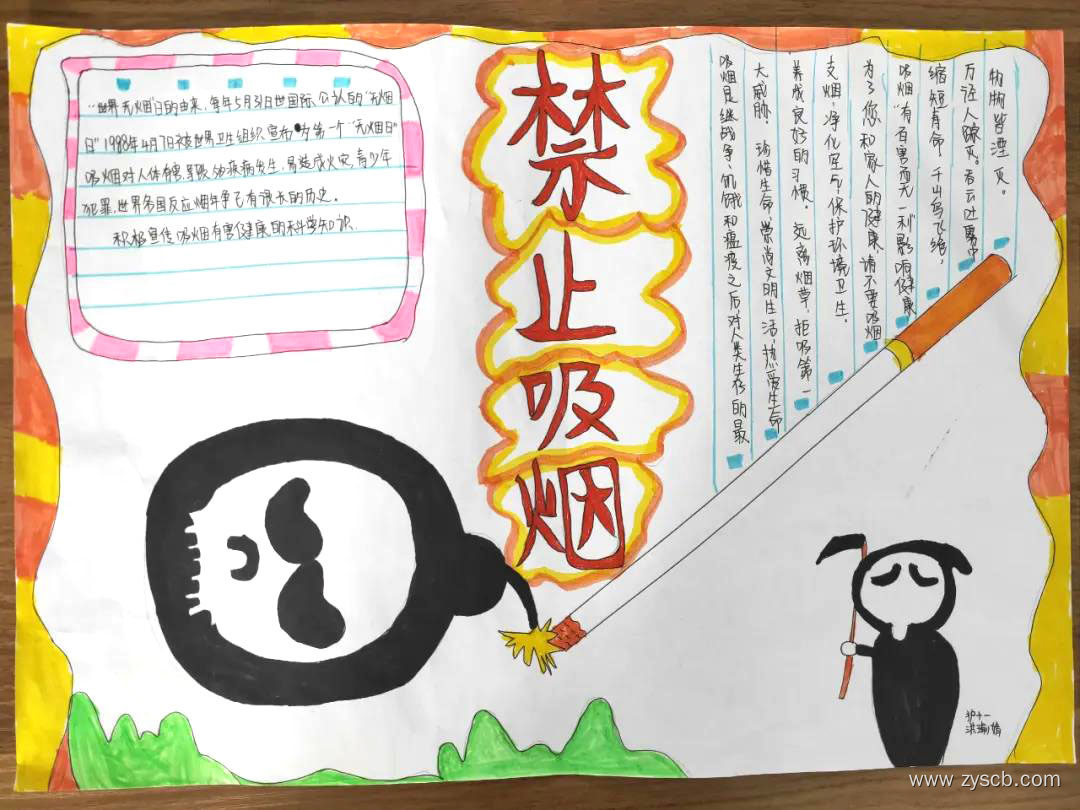 "世界无烟"日的由来,每年5月31日世国际公认的"无烟
日"1988年4月7日被世界卫生组织宣布为第一个"无烟日"
吸烟对人体有害,导致的疾病发生,易造成火灾,青少年
犯罪,世界多国反应烟斗争已有漫长的历史。
积极宣传吸烟有害健康的科学知识.
禁止吸烟
吸烟是继战争、饥饿和瘟疫之后,对人类生存的最
大威胁,珍惜生命,崇尚文明生活,热爱生命
养成良好的习惯,远离烟草,拒吸第一
支烟,净化空气,保护环境卫生。
为了您和家人的健康请不要吸烟,
吸烟"有百害而无一利"影响健康,
缩短寿命 千山鸟飞绝,
万径人踪灭。吞云吐雾中
物物皆湮灭。
护十一
洪
www.zyscb.com